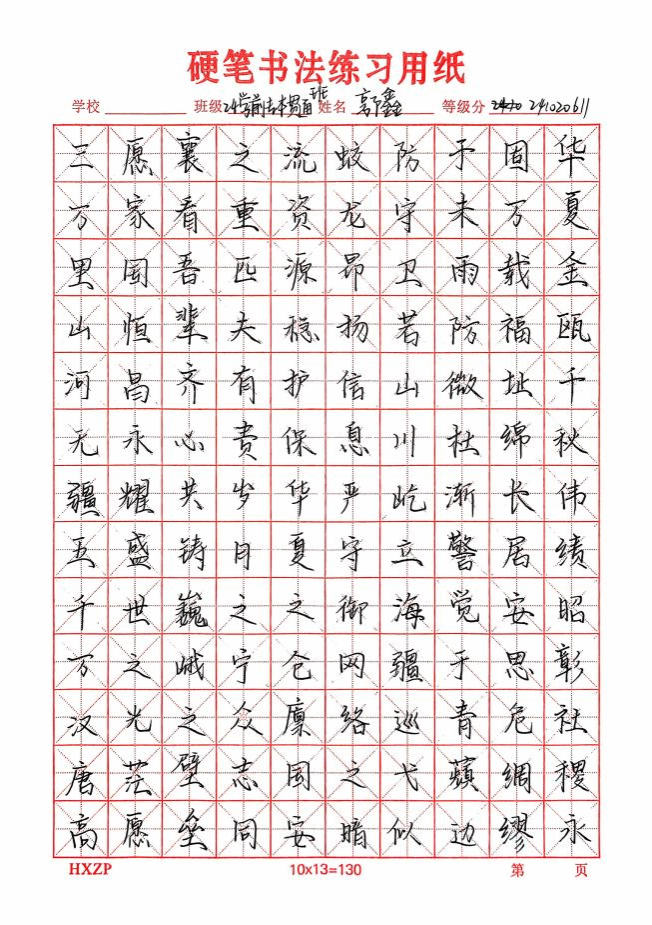 硬笔书法练习用纸
学校 班级24学前专本贯通班 姓名 郭鑫 等级分 241020611
华夏金瓯千秋伟绩昭彰社稷永
固万载福址绵长居安思危绸缪
于未雨防微杜渐警觉于青蘋边
防守卫若山川屹立海疆巡弋似
蛟龙昂扬信息严守御网络之暗
流资源稳护保华夏之仓廪国安
之重匹夫有责岁月之宁众志同
襄看吾辈齐心共铸巍峨之壁垒
愿家国恒昌永耀盛世之光茫愿
三万里山河无疆五千万汉唐高
HXZP 10x13=130 第 页